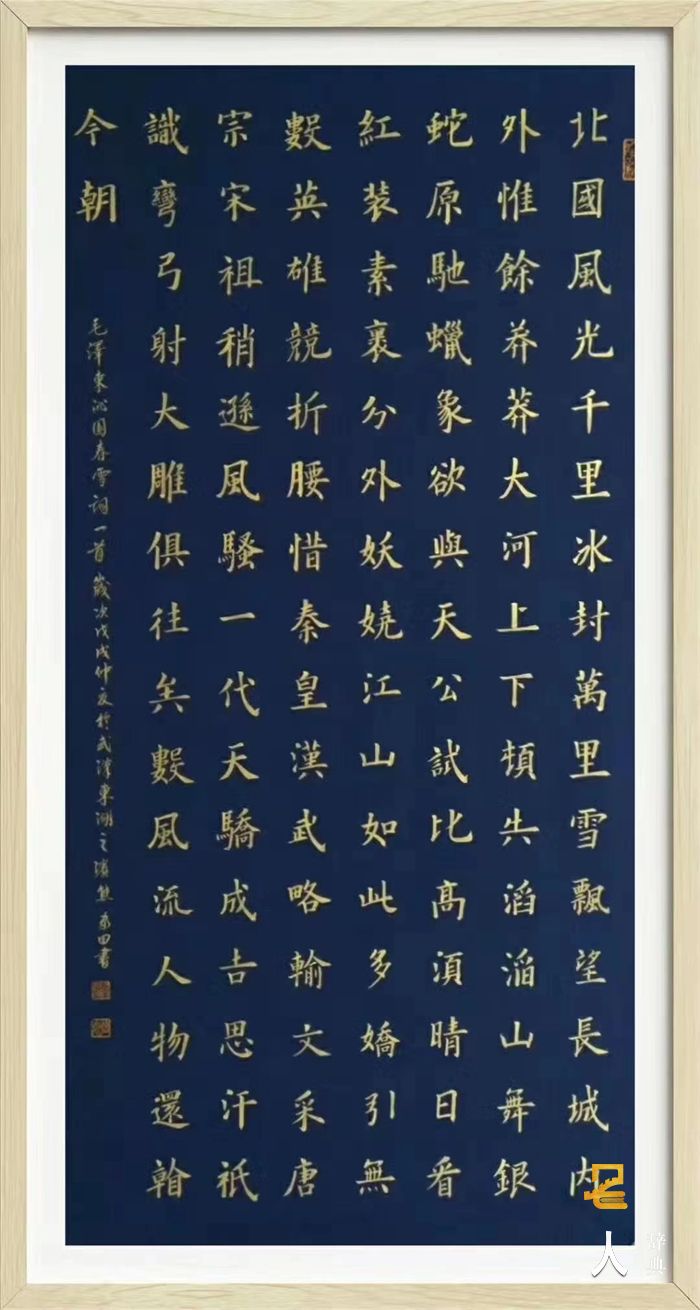 北國風光千里冰封萬里雪飄望長城内
外惟餘莽莽大河上下頓失滔滔山舞銀
蛇原馳蠟象欲與天公試比高須晴日看
紅裝素裹分外妖嬈江山如此多嬌引無
數英雄競折腰惜秦皇漢武略輸文采唐
宗宋祖稍遜風騷一代天驕成吉思汗祇
識彎弓射大雕俱往矣數風流人物還看
今朝
毛澤東沁園春雪詞一首歲次戊戌仲夏於武漢東湖之濱熊田書
人
辞典